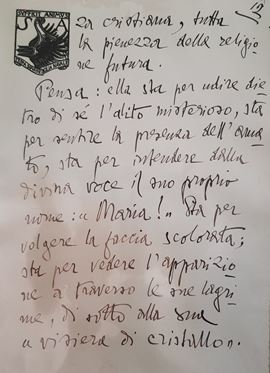 19
SUFFICIT ANIMUS
za cristiana, tutta
la pienezza della religio
ne futura.
Pensa: ella sta per udire die
tro di sé l'alito misterioso, sta
per sentire la presenza dell'ama
to, sta per intendere dalla
divina voce il suo proprio
nome: « Maria!» Sta per
volgere la faccia scolorata;
sta per vedere l'apparizio
ne a traverso le sue lagri
me, di sotto alla sua
« visiera di cristallo».